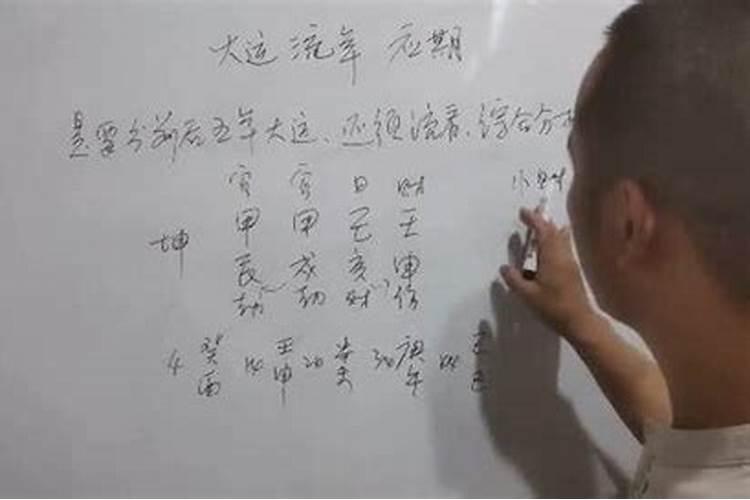 大运 流年 应期
是要分前后五年大运、还须流看、综合分
官 官 日 财 小
甲 甲 己 壬
坤
辰 戌 亥 申
劫 劫 财 伤
4 癸 14 壬 24 辛 34 庚 44 己
酉 申 未 午 巳